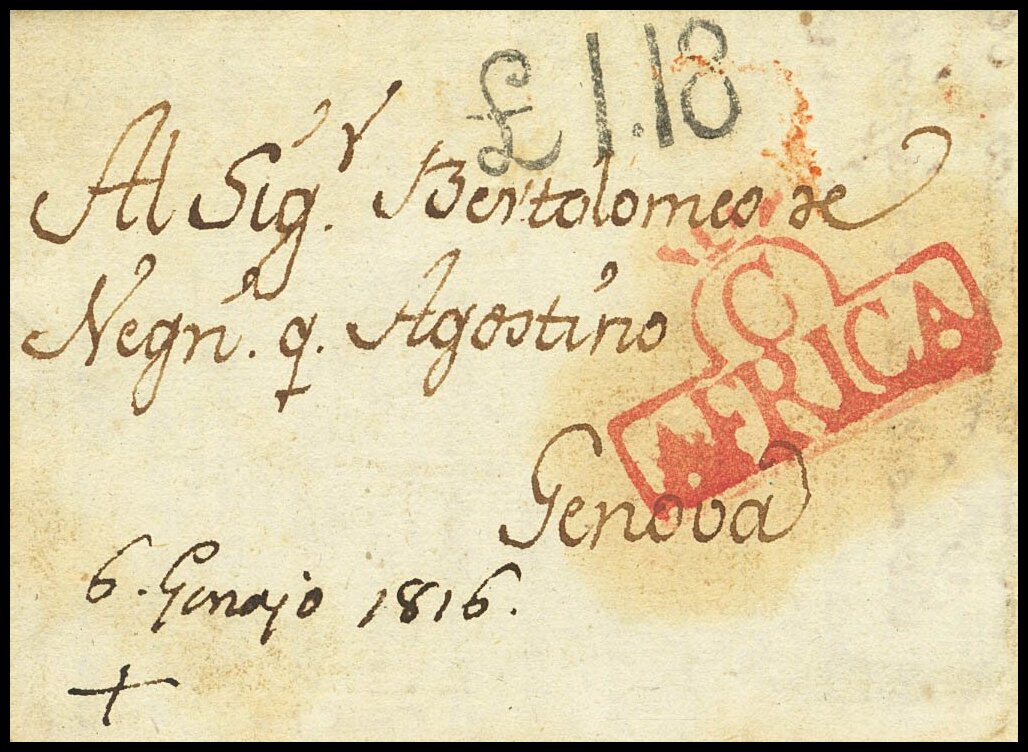 £ 1.18
Al Sig.r Bertolomeo de
Negri. q. Agostino
C
AFRICA
Genova
6. Genajo 1816.